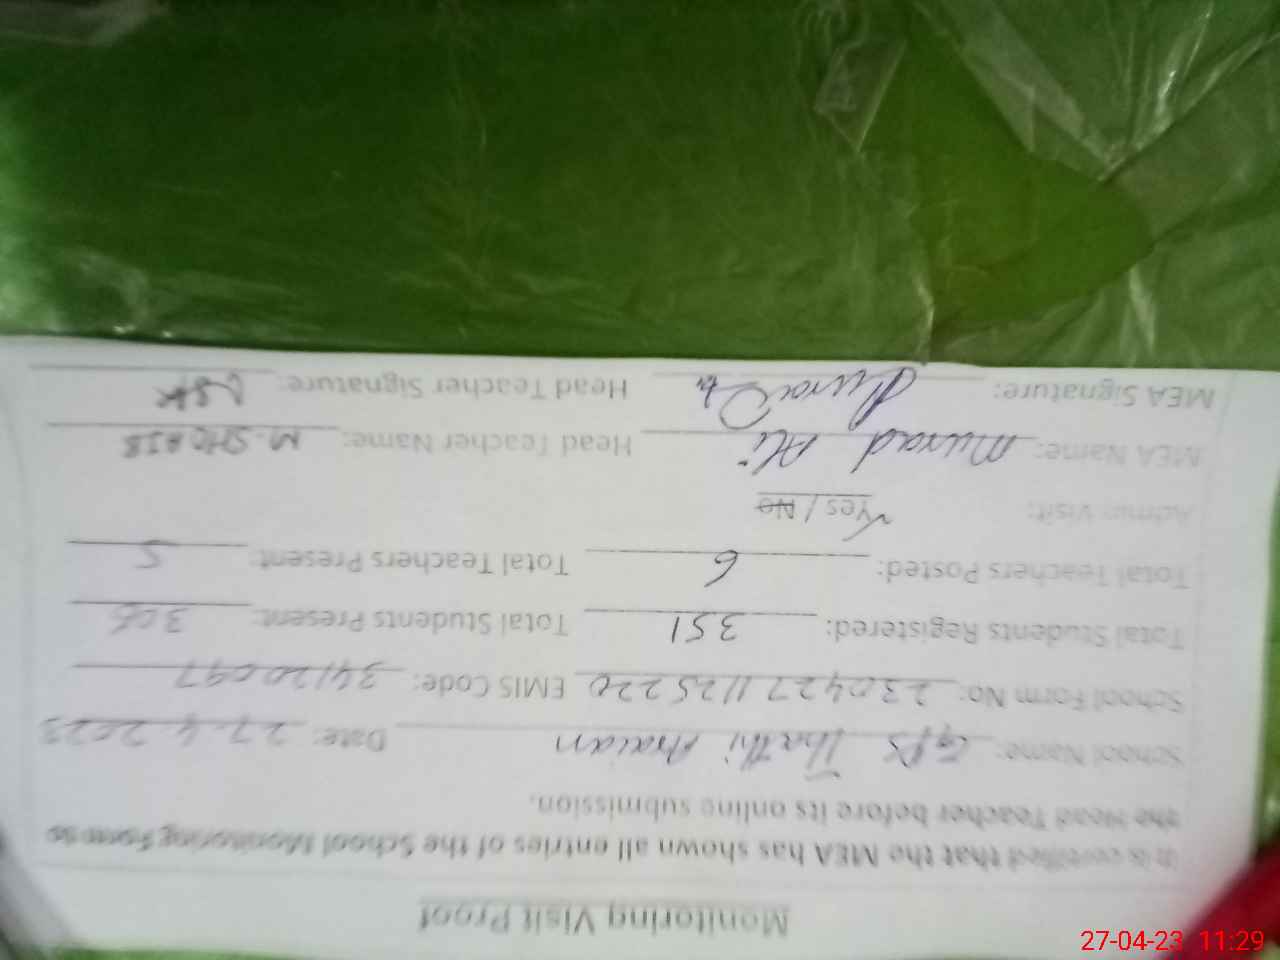 Monitoring Visit Proof
It is certified that the MEA has shown all entries of the School Monitoring Form to
the Head Teacher before its online submission.
School Name: GPS Thathi Araian Date: 27-4-2023
School Form No: 2304271125220 EMIS Code: 34120097
Total Students Registered: 351 Total Students Present: 305
Total Teachers Posted: 6 Total Teachers Present: 5
Admin Visit: Yes / No
MEA Name: Murad Ali Head Teacher Name: M. SHOAIB
MEA Signature: Head Teacher Signature:
27-04-23 11:29